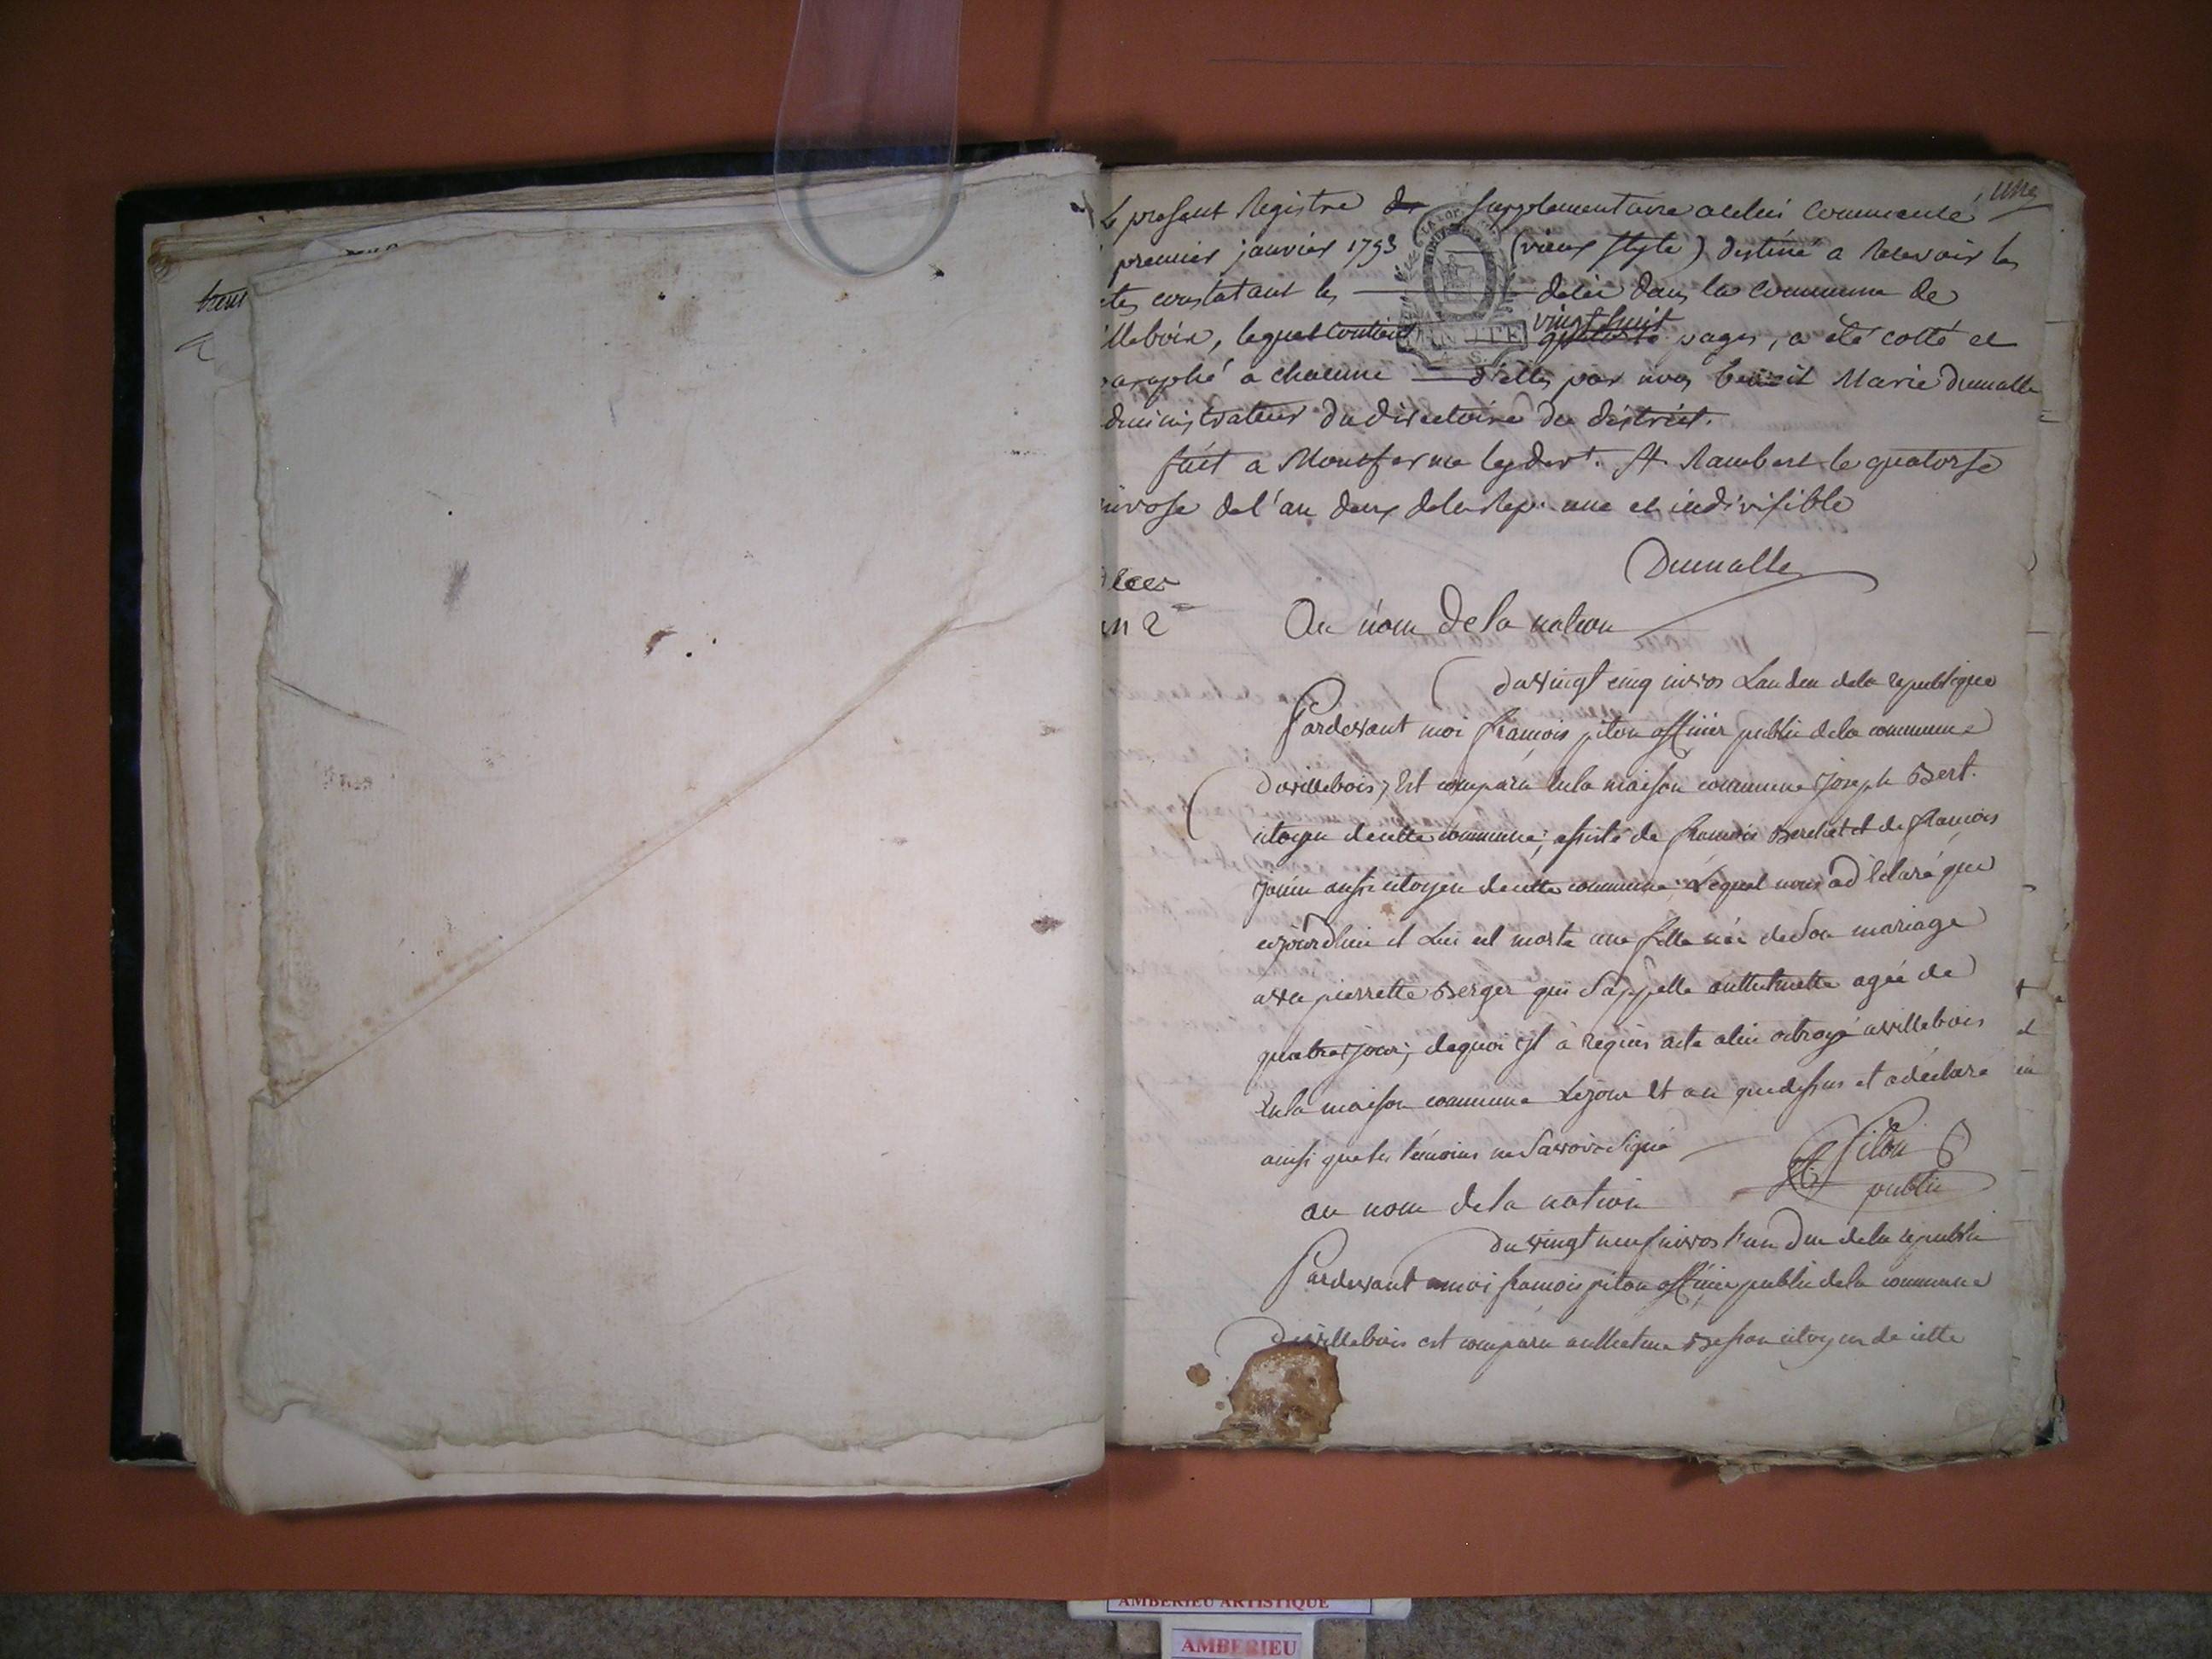 une
Le present Registre de supplementaire acelui Commencé
premier janvier 1793 (vieux style) destiné a Recevoir les
ctes constatant les décès dans la Commune de
illebois, lequel Contient vingt huit pages, a été cotté et
paraphé a chacune d'elles par nous benoit Marie Dumalle
dministrateur du directoire du district.
fait a Montferme ley devt. St. Rambert le quatorse
nivose de l'an deux dela Rep. une et indivisible
Dumalle
an 2
Au nom De la nation
Du vingt cinq nivos Lan deu dela republique
Pardevant moi françois piton officier public dela commune
De villebois, Est comparu enla maison commune Joseph Bert.
citoyen de cette commune; assisté de francois Berchet et de francois
Janin aussi citoyen de cette commune; Lequel nous a déclaré que
cejourdhui il Lui est morte une fille née de Son mariage
avec pierrette Berger qui S'appelle anthelmette agée de
quatre jour; dequoi il à requis acte alui octroyé a villebois
Enla maison commune Lejour Et an que dessus et a déclaré
ainsi que les témoins ne Savoir Signé
Piton
off. public
au nom de la nation
Du vingt neuf nivos l'an Deu dela republi
Pardevant moi francois piton officier public dela commune
De villebois est comparu anthelme Besson citoyen de cette
AMBERIEU ARTISTIQUE
AMBERIEU